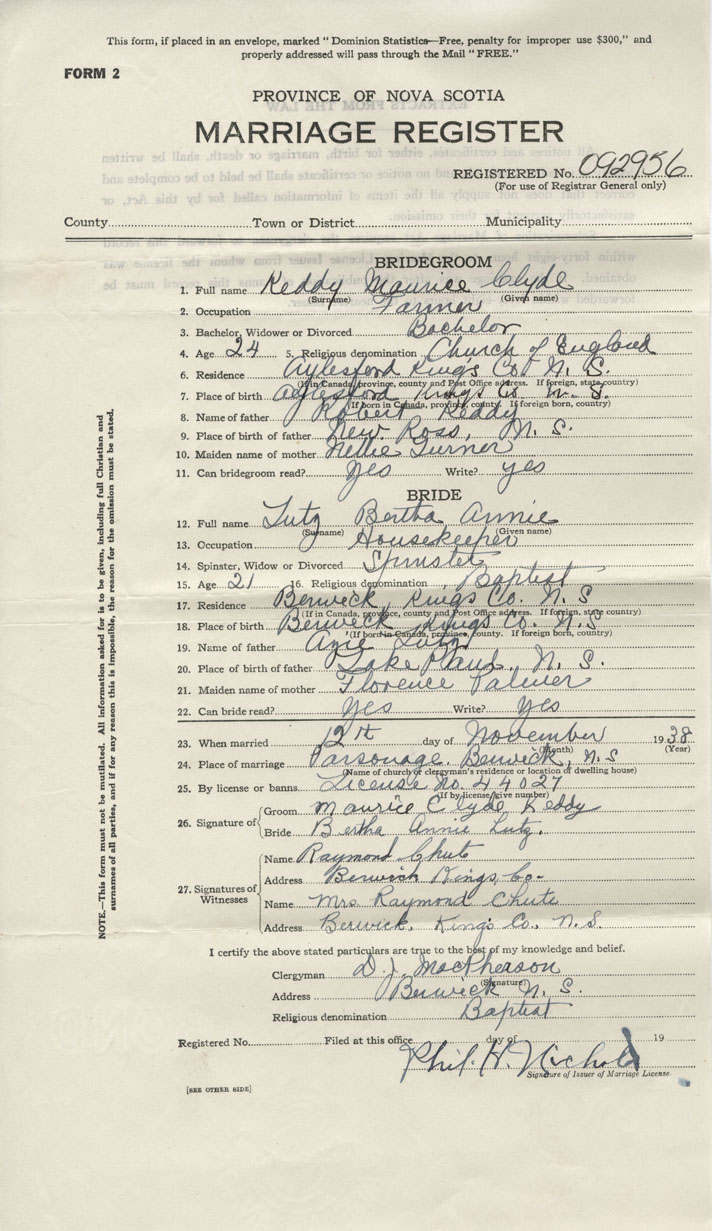 This form, if placed in an envelope, marked "Dominion Statistics—Free, penalty for improper use $300," and
properly addressed will pass through the Mail "FREE."
FORM 2
PROVINCE OF NOVA SCOTIA
MARRIAGE REGISTER
REGISTERED No. 092956
(For use of Registrar General only)
County Town or District Municipality
BRIDEGROOM
1. Full name Keddy Maurice Clyde
(Surname) (Given name)
2. Occupation Farmer
3. Bachelor, Widower or Divorced Bachelor
4. Age 24 5. Religious denomination Church of England
6. Residence Aylesford Kings Co. N. S.
(If in Canada, province, county and Post Office address. If foreign, state, county)
7. Place of birth Aylesford Kings Co. N. S.
(If born in Canada, province, county. If foreign born, country)
8. Name of father Robert Keddy
9. Place of birth of father New Ross, N. S.
10. Maiden name of mother Nellie Turner
11. Can bridegroom read? Yes Write? yes
BRIDE
12. Full name Lutz Bertha Annie
(Surname) (Given name)
13. Occupation Housekeeper
14. Spinster, Widow or Divorced Spinster
15. Age 21 16. Religious denomination Baptist
17. Residence Berwick, Kings Co. N. S
(If in Canada, province, county and Post Office address. If foreign, state, county)
18. Place of birth Berwick Kings Co. N. S
(If born in Canada, province, county. If foreign born, country)
19. Name of father Lutz
20. Place of birth of father Lake Paul, N. S.
21. Maiden name of mother Florence Palmer
22. Can bride read? Yes Write? Yes
23. When married 12th day of November 1938
(Month) (Year)
24. Place of marriage Parsonage, Berwick, N. S
(Name of church or clergyman's residence or location of dwelling house)
25. By license or banns License No. 44027
(If by license, give number)
26. Signature of Groom Maurice Clyde Keddy
Bride Bertha Annie Lutz.
27. Signatures of Witnesses
Name Raymond Chute
Address Berwick Kings, Co.
Name Mrs Raymond Chute
Address Berwick, King's Co., N. S.
I certify the above stated particulars are true to the best of my knowledge and belief.
Clergyman D. J. MacPherson
(Signature)
Address Berwick N. S.
Religious denomination Baptist
Registered No. Filed at this office day of 19
Phil. H. Nichols
Signature of Issuer of Marriage License
[SEE OTHER SIDE]
NOTE.—This form must not be mutilated. All information asked for is to be given, including full Christian and
surnames of all parties, and if for any reason this is impossible, the reason for the omission must be stated.